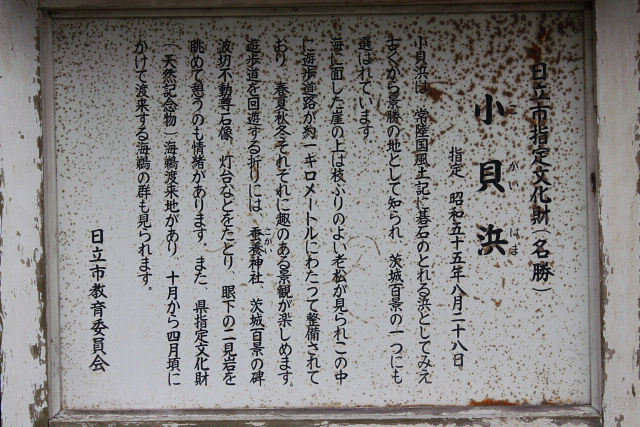 日立市指定文化財(名勝)
小貝浜
こ かい はま
指定 昭和五十五年八月二十八日
小貝浜は、常陸国風土記に碁石のとれる浜としてみえ
古くから景勝の地として知られ、茨城百景の一つにも
選ばれています。
海に面した崖の上は枝ぶりのよい老松が見られこの中
に遊歩道路が約一キロメートルにわたって整備されて
おり、春夏秋冬それぞれに趣のある景観が楽しめます。
遊歩道を回遊する折りには、蚕養神社、茨城百景の碑
こがい
波切不動尊石像、灯台などをたどり、眼下の二見岩を
眺めて憩うのも情緒があります。また、県指定文化財
(天然記念物)海鵜渡来地があり、十月から四月頃に
かけて渡来する海鵜の群も見られます。
日立市教育委員会